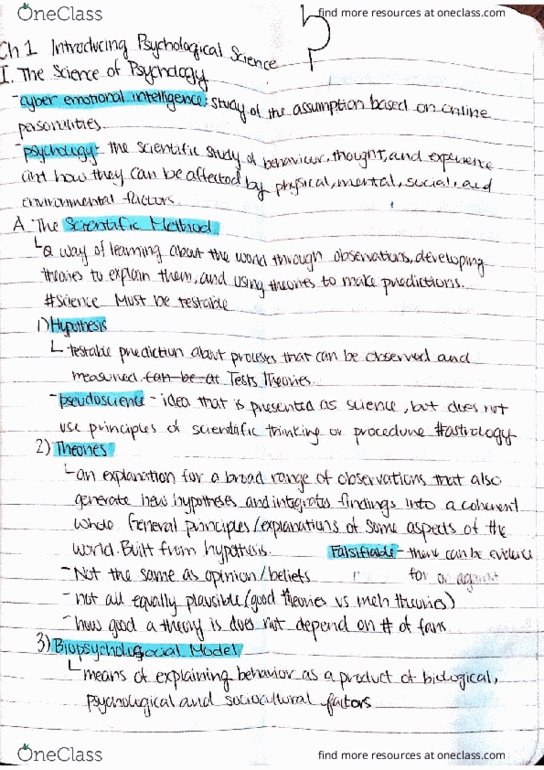 OneClass find more resources at oneclass.com
Ch 1 Introducing Psychological Science
I. The Science of Psychology
- cyber emotional intelligence: study of the assumption based on online
personalities.
- psychology - the scientific study of behaviour, thought, and experience
and how they can be affected by physical, mental, social, and
environmental factors.
A. The Scientific Method
a way of learning about the world through observations, developing
theories to explain them, and using theories to make predictions.
#Science Must be testable
1) Hypothesis
testable prediction about processes that can be observed and
measured can be at Tests Theories.
- pseudoscience - idea that is presented as science, but does not
use principles of scientific thinking or procedure #astrology
2) Theories
- an explanation for a broad range of observations that also
generate new hypotheses and integrates findings into a coherent
whole General principles/explanations of some aspects of the
world. Built from hypothesis. Falsifiable - there can be evidence
- Not the same as opinion/beliefs " for or against
- not all equally plausible (good theories vs meh theories)
- how good a theory is does not depend on # of fans.
3) Biopsychosocial Model
means of explaining behavior as a product of biological,
psychological and sociocultural factors
OneClass find more resources at oneclass.com